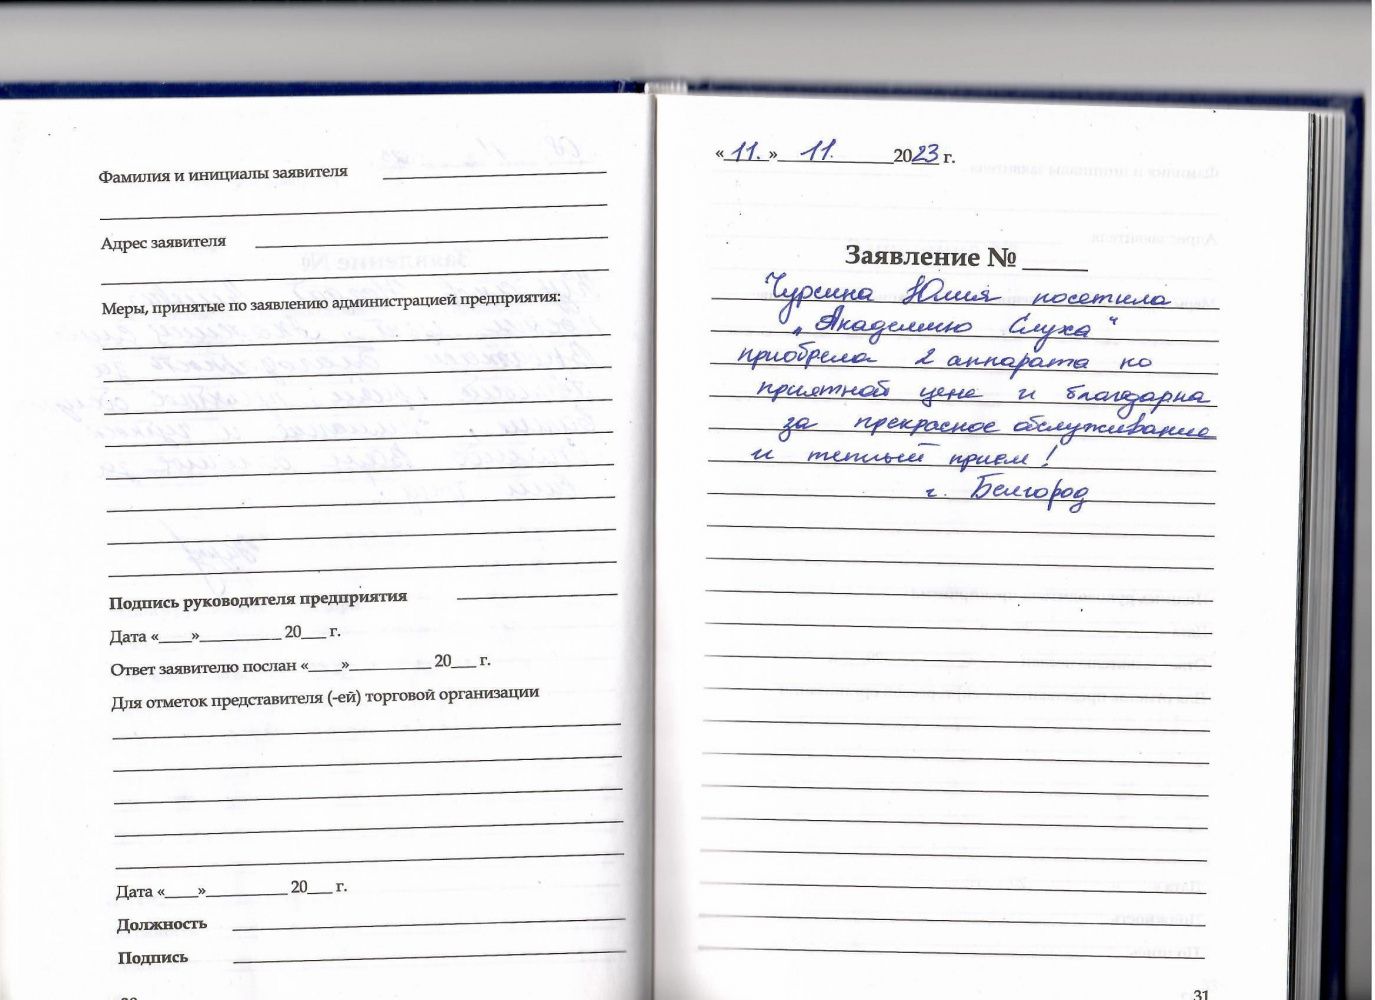 Фамилия и инициалы заявителя
Адрес заявителя
Меры, принятые по заявлению администрацией предприятия:
Подпись руководителя предприятия
Дата «____»__________ 20___ г.
Ответ заявителю послан «____»__________ 20___ г.
Для отметок представителя (-ей) торговой организации
Дата «____»__________ 20___ г.
Должность
Подпись
«11.» 11. 2023 г.
Заявление № _____
Чурсина Юлия посетила
„Академию Слуха“
приобрела 2 аппарата по
приятной цене и благодарна
за прекрасное обслуживание
и теплый прием!
г. Белгород
31